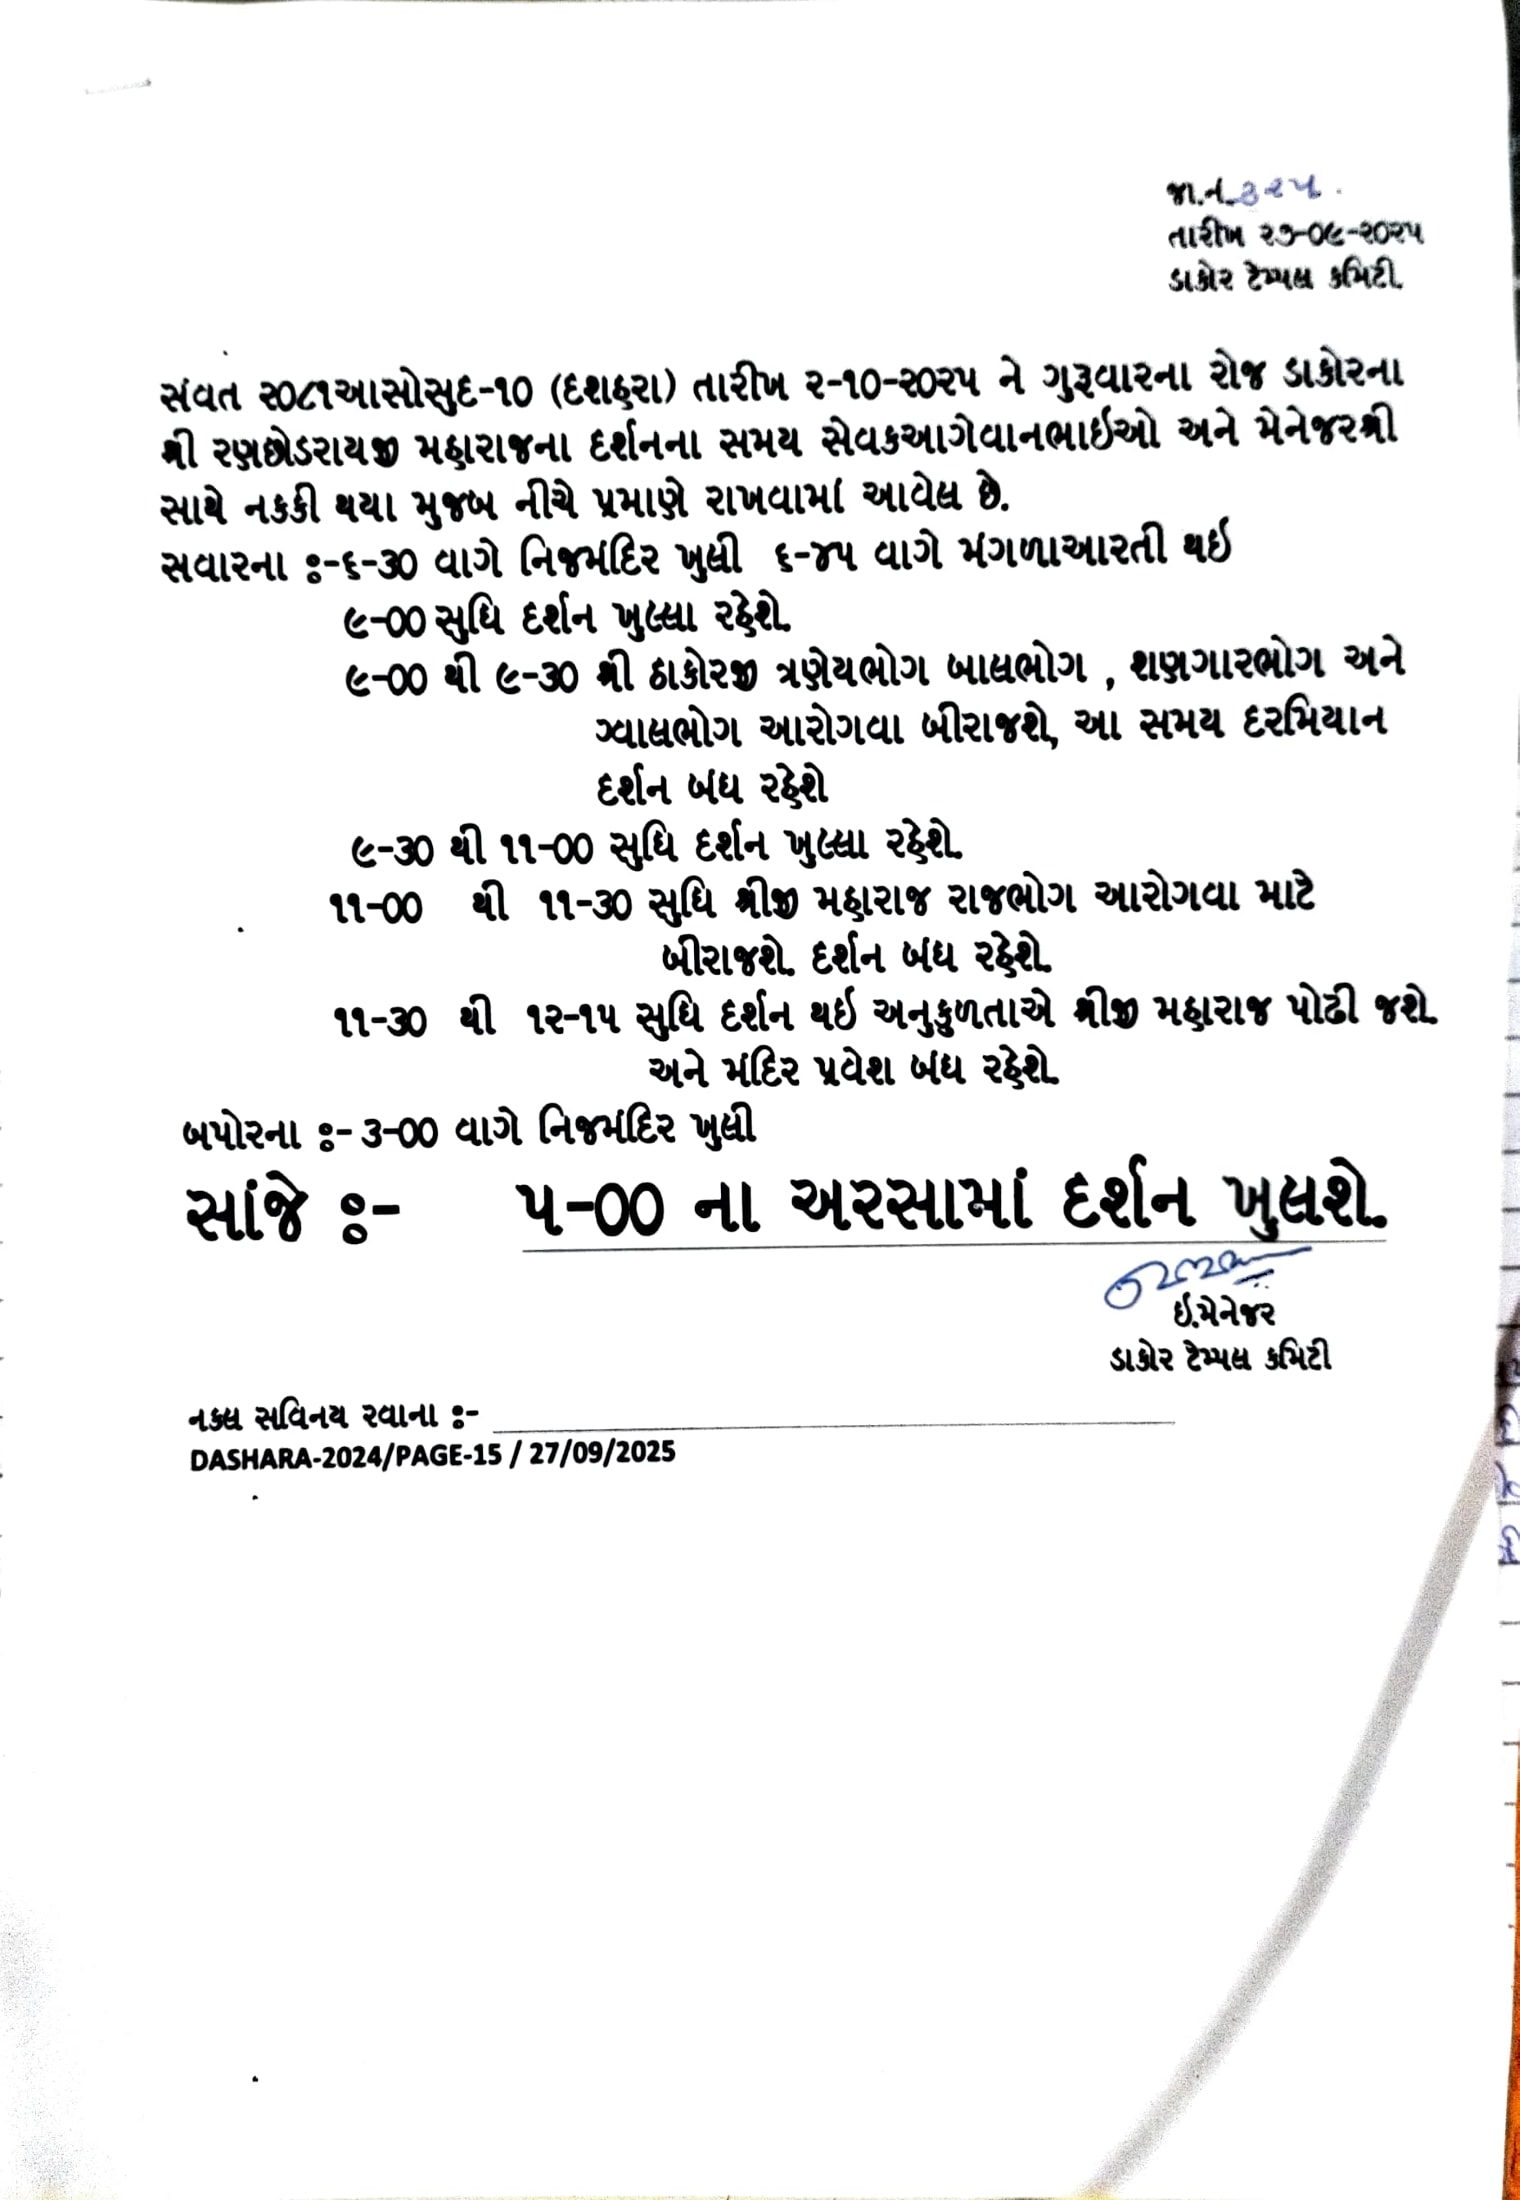 જા.નં. ૩૨૫.
તારીખ ૨૭-૦૯-૨૦૨૫
ડાકોર ટેમ્પલ કમિટી.
સંવત ૨૦૮૧આસોસુદ-૧૦ (દશહરા) તારીખ ૨-૧૦-૨૦૨૫ ને ગુરૂવારના રોજ ડાકોરના
શ્રી રણછોડરાયજી મહારાજના દર્શનના સમય સેવકઆગેવાનભાઇઓ અને મેનેજરશ્રી
સાથે નકકી થયા મુજબ નીચે પ્રમાણે રાખવામાં આવેલ છે.
સવારના :-૬-૩૦ વાગે નિજમંદિર ખુલી ૬-૪૫ વાગે મંગળાઆરતી થઇ
૯-૦૦ સુધિ દર્શન ખુલ્લા રહેશે.
૯-૦૦ થી ૯-૩૦ શ્રી ઠાકોરજી ત્રણેયભોગ બાલભોગ , શણગારભોગ અને
ગ્વાલભોગ આરોગવા બીરાજશે, આ સમય દરમિયાન
દર્શન બંધ રહેશે
૯-૩૦ થી ૧૧-૦૦ સુધિ દર્શન ખુલ્લા રહેશે.
૧૧-૦૦ થી ૧૧-૩૦ સુધિ શ્રીજી મહારાજ રાજભોગ આરોગવા માટે
બીરાજશે. દર્શન બંધ રહેશે.
૧૧-૩૦ થી ૧૨-૧૫ સુધિ દર્શન થઇ અનુકુળતાએ શ્રીજી મહારાજ પોઢી જશે.
અને મંદિર પ્રવેશ બંધ રહેશે.
બપોરના :- ૩-૦૦ વાગે નિજમંદિર ખુલી
સાંજે :- ૫-૦૦ ના અરસામાં દર્શન ખુલશે.
ઇ.મેનેજર
ડાકોર ટેમ્પલ કમિટી
નકલ સવિનય રવાના :-
DASHARA-2024/PAGE-15 / 27/09/2025